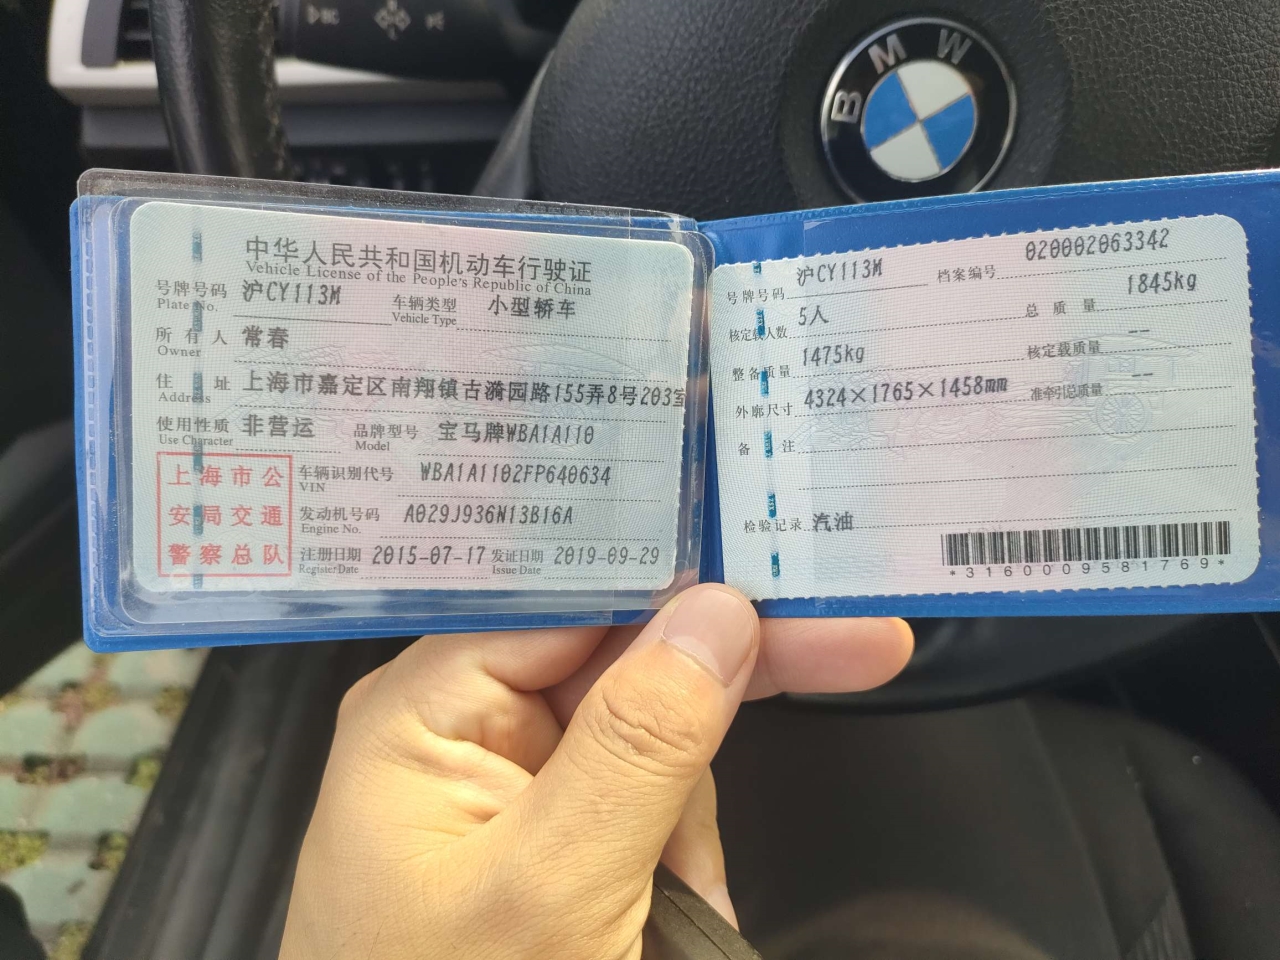 BMW
中华人民共和国机动车行驶证
Vehicle License of the People's Republic of China
号牌号码 沪CY113M 车辆类型 小型轿车
Plate No. Vehicle Type
所有人 常春
Owner
住址 上海市嘉定区南翔镇古漪园路155弄8号203室
Address
使用性质 非营运 品牌型号 宝马牌WBA1A110
Use Character Model
上海市公
安局交通
警察总队
车辆识别代号 WBA1A1102FP640634
VIN
发动机号码 A029J936N13B16A
Engine No.
注册日期 2015-07-17 发证日期 2019-09-29
Register Date Issue Date
号牌号码 沪CY113M 档案编号 020002063342
核定载人数 5人 总质量 1845kg
整备质量 1475kg 核定载质量 --
外廓尺寸 4324×1765×1458mm 准牵引总质量 --
备注
检验记录 汽油
*3160009581769*